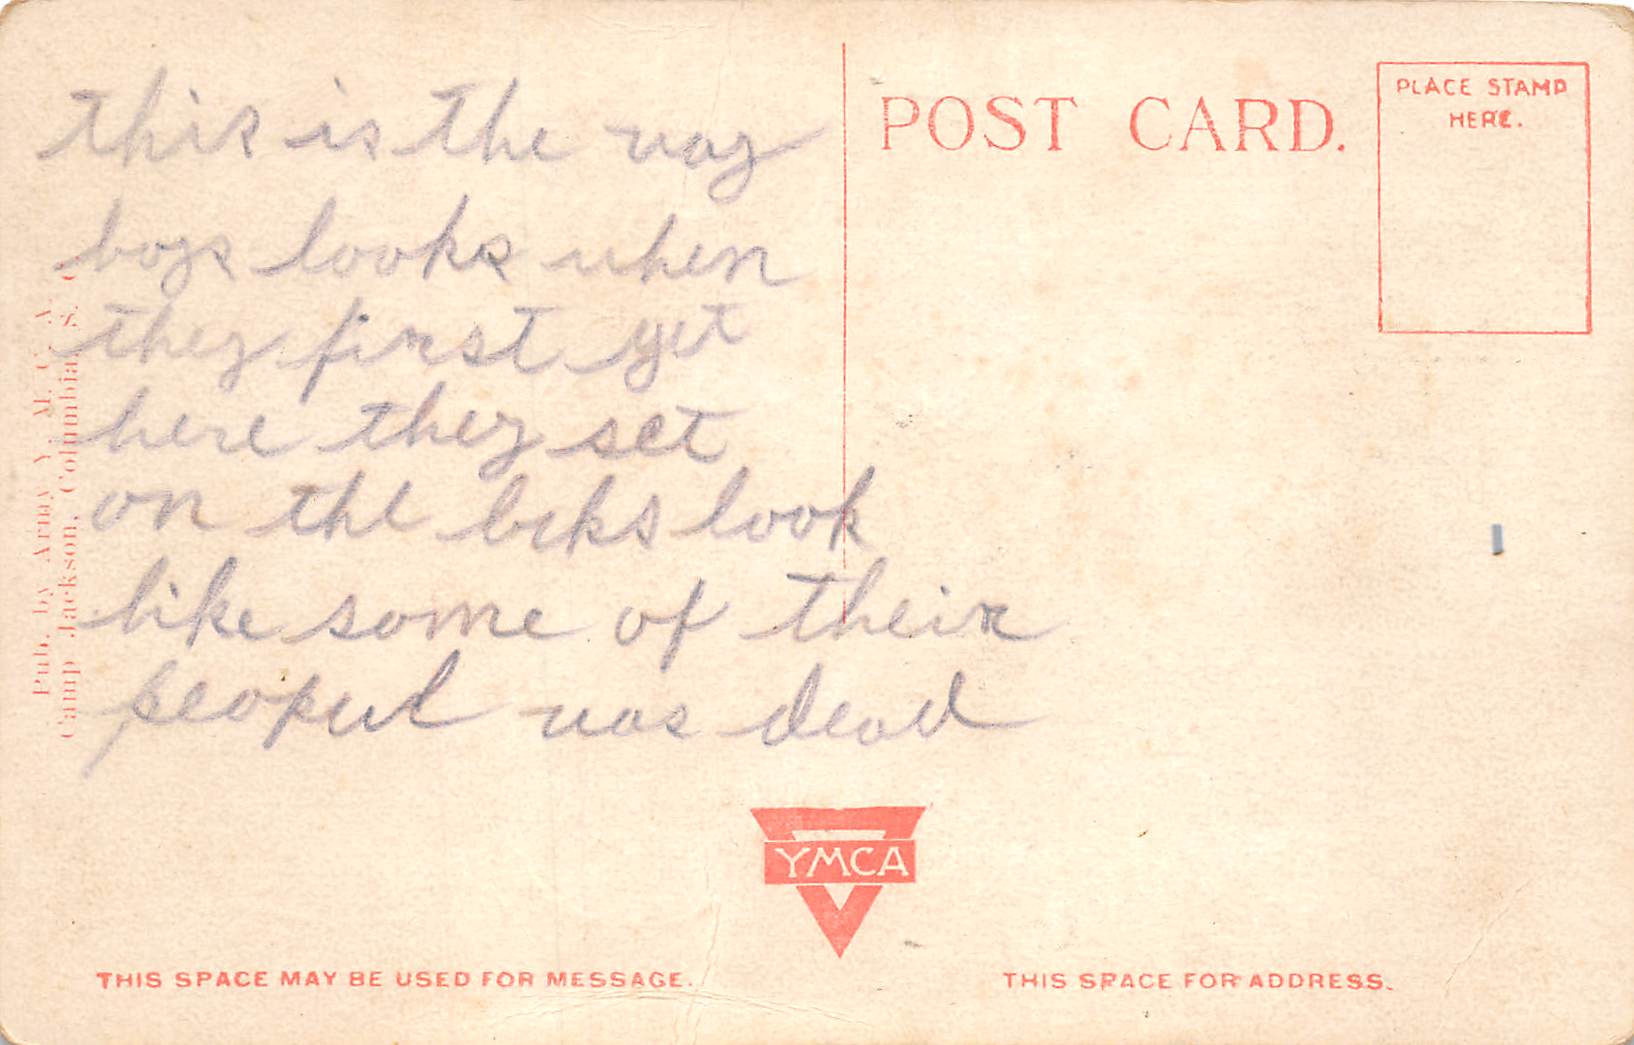 this is the way
boys looks when
they first get
here they set
on the beks look
like some of their
peopul was dead
POST CARD.
PLACE STAMP
HERE.
Pub. by Army Y. M. C. A.
Camp Jackson, Columbia, S. C.
YMCA
THIS SPACE MAY BE USED FOR MESSAGE.
THIS SPACE FOR ADDRESS.